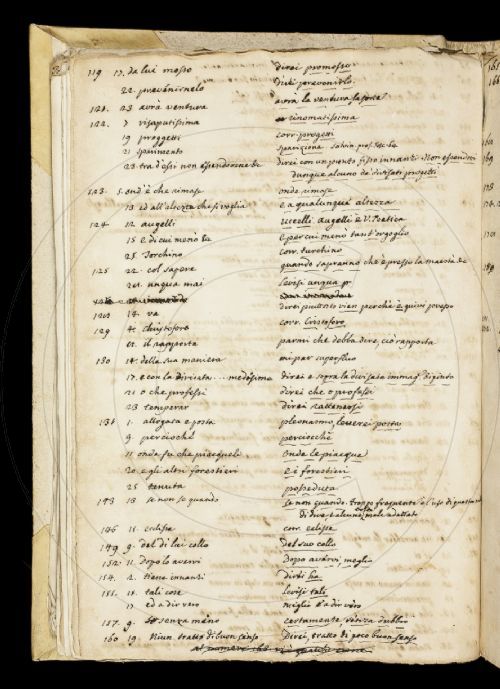 119 17. da lui mosso direi promosso
22. prevenirnelo Direi prevenirlo
121. 23 avrà ventura avrà la ventura
122. 7 risaputissima rinomatissima
19 proggetti corr. progetti
21 sparimento sparizione
23. tra d'essi non essendovene direi con un punto fisso innanzi. Non essendovi
Dunque alcuno de' divisati progetti
123. 5. ond'è che rimase onde rimase
13. ed all'altezza che si voglia e a qualunque altezza
124 12. augelli uccelli. augelli è V. Poetica
15 e di cui menò e per cui menò tant'orgoglio
25. Torchino corr. turchino
125 22. col sapere quando sapranno che appresso la maestà
24. unqua mai levisi unqua
128 14. va direi piuttosto vien perchè è quivi
129 4. Christoforo corr. Cristoforo
21. il rapporta parmi che debba dire, ciò rapporta
130 14. della sua maniera mi par superfluo
17. e con la divisata ... medesima direi e sopra la divisata immag.
21 o che professi direi che o professi
23 temperar direi rattenersi
131 1. allogata e posta pleonasmo, leverei posta
9 perciochè perciocchè
11 onda fu che piacqueli Onde le piacque
20. e gli altri forestieri e i forestieri
25 tenuta posseduta
143 18 se non se quando se non quando. troppo frequente è l'uso di
di dire talune, male adattato
146 11. eclisse corr. eclisse
149 9. del di lui collo Del suo collo
152. 11. Dopo lo avervi Dopo avervi, meglio
154. 2. tiene innanzi Direi ha
155. 11. tali cose levisi tali
17. ed a dir vero meglio e a dir vero
157. 9. senza meno certamente, senza dubbio
160 19. Niun tratto di buon senso Direi, tratto di poco buon senso